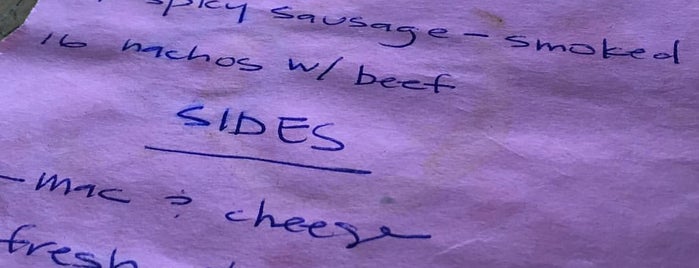 spicy sausage - smoked
16 nachos w/ beef
SIDES
- mac & cheese
fresh